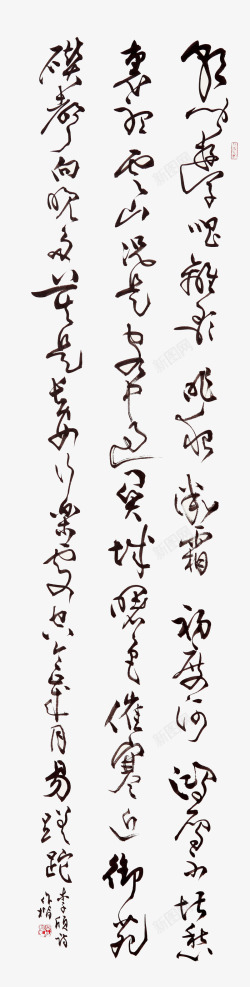 朝闻游子唱离歌昨夜微霜初度河鸿雁不堪愁
里听云山况是客中过关城曙色催寒近御苑
砧声向晚多莫是长安行乐处空令岁月易蹉跎
李颀诗